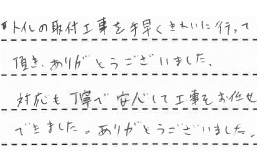 トイレの取付工事を手早くきれいに行って
頂き、ありがとうございました。
対応も丁寧で安心して工事をお任せ
できました。ありがとうございました。